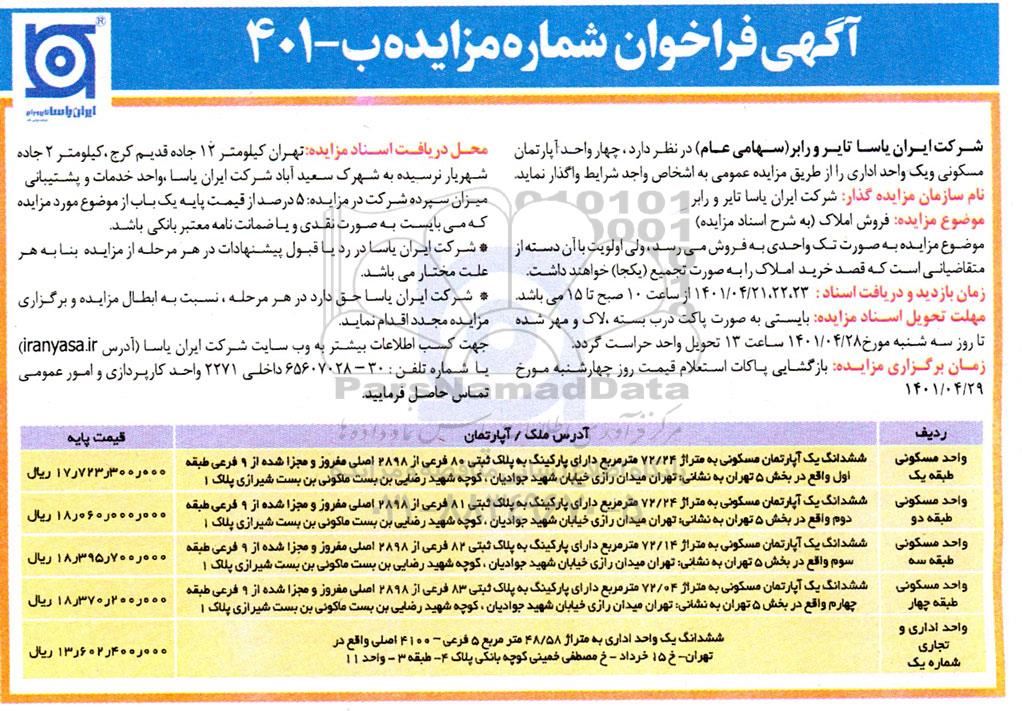 آگهی فراخوان شماره مزایده ب-۴۰۱
ایران یاسا تایر و رابر
شرکت ایران یاسا تایر و رابر (سهامی عام) در نظر دارد ، چهار واحد آپارتمان
مسکونی ویک واحد اداری را از طریق مزایده عمومی به اشخاص واجد شرایط واگذار نماید.
نام سازمان مزایده گذار: شرکت ایران یاسا تایر و رابر
موضوع مزایده: فروش املاک (به شرح اسناد مزایده)
موضوع مزایده به صورت تک واحدی به فروش می رسد، ولی اولویت با آن دسته از
متقاضیانی است که قصد خرید املاک را به صورت تجمیع (یکجا) خواهند داشت.
زمان بازدید و دریافت اسناد : ۱۴۰۱/۰۴/۲۱،۲۲،۲۳ از ساعت ۱۰ صبح تا ۱۵ می باشد.
مهلت تحویل اسناد مزایده: بایستی به صورت پاکت درب بسته ،لاک و مهر شده
تا روز سه شنبه مورخ ۱۴۰۱/۰۴/۲۸ ساعت ۱۳ تحویل واحد حراست گردد.
زمان برگزاری مزایده: بازگشایی پاکات استعلام قیمت روز چهارشنبه مورخ
۱۴۰۱/۰۴/۲۹
محل دریافت اسناد مزایده: تهران کیلومتر ۱۲ جاده قدیم کرج ،کیلومتر ۲ جاده
شهریار نرسیده به شهرک سعید آباد شرکت ایران یاسا ،واحد خدمات و پشتیبانی
میزان سپرده شرکت در مزایده: ۵ درصد از قیمت پایه یک باب از موضوع مورد مزایده
که می بایست به صورت نقدی و یا ضمانت نامه معتبر بانکی باشد.
* شرکت ایران یاسا در رد یا قبول پیشنهادات در هر مرحله از مزایده بنا به هر
علت مختار می باشد.
* شرکت ایران یاسا حق دارد در هر مرحله ، نسبت به ابطال مزایده و برگزاری
مزایده مجدد اقدام نماید.
جهت کسب اطلاعات بیشتر به وب سایت شرکت ایران یاسا (آدرس iranyasa.ir)
یا شماره تلفن : ۳۰ - ۶۵۶۰۷۰۲۸ داخلی ۲۲۷۱ واحد کارپردازی و امور عمومی
تماس حاصل فرمایید.
ParsNamadData
ردیف آدرس ملک / آپارتمان قیمت پایه
واحد مسکونی طبقه یک
ششدانگ یک آپارتمان مسکونی به متراژ ۷۲/۲۴ مترمربع دارای پارکینگ به پلاک ثبتی ۸۰ فرعی از ۲۸۹۸ اصلی مفروز و مجزا شده از ۹ فرعی طبقه
اول واقع در بخش ۵ تهران به نشانی: تهران میدان رازی خیابان شهید جوادیان ، کوچه شهید رضایی بن بست ماکونی بن بست شیرازی پلاک ۱
۱۷٫۷۲۳٫۳۰۰٫۰۰۰ ریال
واحد مسکونی طبقه دو
ششدانگ یک آپارتمان مسکونی به متراژ ۷۲/۲۴ مترمربع دارای پارکینگ به پلاک ثبتی ۸۱ فرعی از ۲۸۹۸ اصلی مفروز و مجزا شده از ۹ فرعی طبقه
دوم واقع در بخش ۵ تهران به نشانی: تهران میدان رازی خیابان شهید جوادیان ، کوچه شهید رضایی بن بست ماکونی بن بست شیرازی پلاک ۱
۱۸٫۰۶۰٫۰۰۰٫۰۰۰ ریال
واحد مسکونی طبقه سه
ششدانگ یک آپارتمان مسکونی به متراژ ۷۲/۱۴ مترمربع دارای پارکینگ به پلاک ثبتی ۸۲ فرعی از ۲۸۹۸ اصلی مفروز و مجزا شده از ۹ فرعی طبقه
سوم واقع در بخش ۵ تهران به نشانی: تهران میدان رازی خیابان شهید جوادیان ، کوچه شهید رضایی بن بست ماکونی بن بست شیرازی پلاک ۱
۱۸٫۳۹۵٫۷۰۰٫۰۰۰ ریال
واحد مسکونی طبقه چهار
ششدانگ یک آپارتمان مسکونی به متراژ ۷۲/۰۴ مترمربع دارای پارکینگ به پلاک ثبتی ۸۳ فرعی از ۲۸۹۸ اصلی مفروز و مجزا شده از ۹ فرعی طبقه
چهارم واقع در بخش ۵ تهران به نشانی: تهران میدان رازی خیابان شهید جوادیان ، کوچه شهید رضایی بن بست ماکونی بن بست شیرازی پلاک ۱
۱۸٫۳۷۰٫۲۰۰٫۰۰۰ ریال
واحد اداری و تجاری شماره یک
ششدانگ یک واحد اداری به متراژ ۴۸/۵۸ متر مربع ۵ فرعی – ۴۱۰۰ اصلی واقع در
تهران- خ ۱۵ خرداد - خ مصطفی خمینی کوچه بانکی پلاک ۴- طبقه ۳ - واحد ۱۱
۱۳٫۶۰۲٫۴۰۰٫۰۰۰ ریال